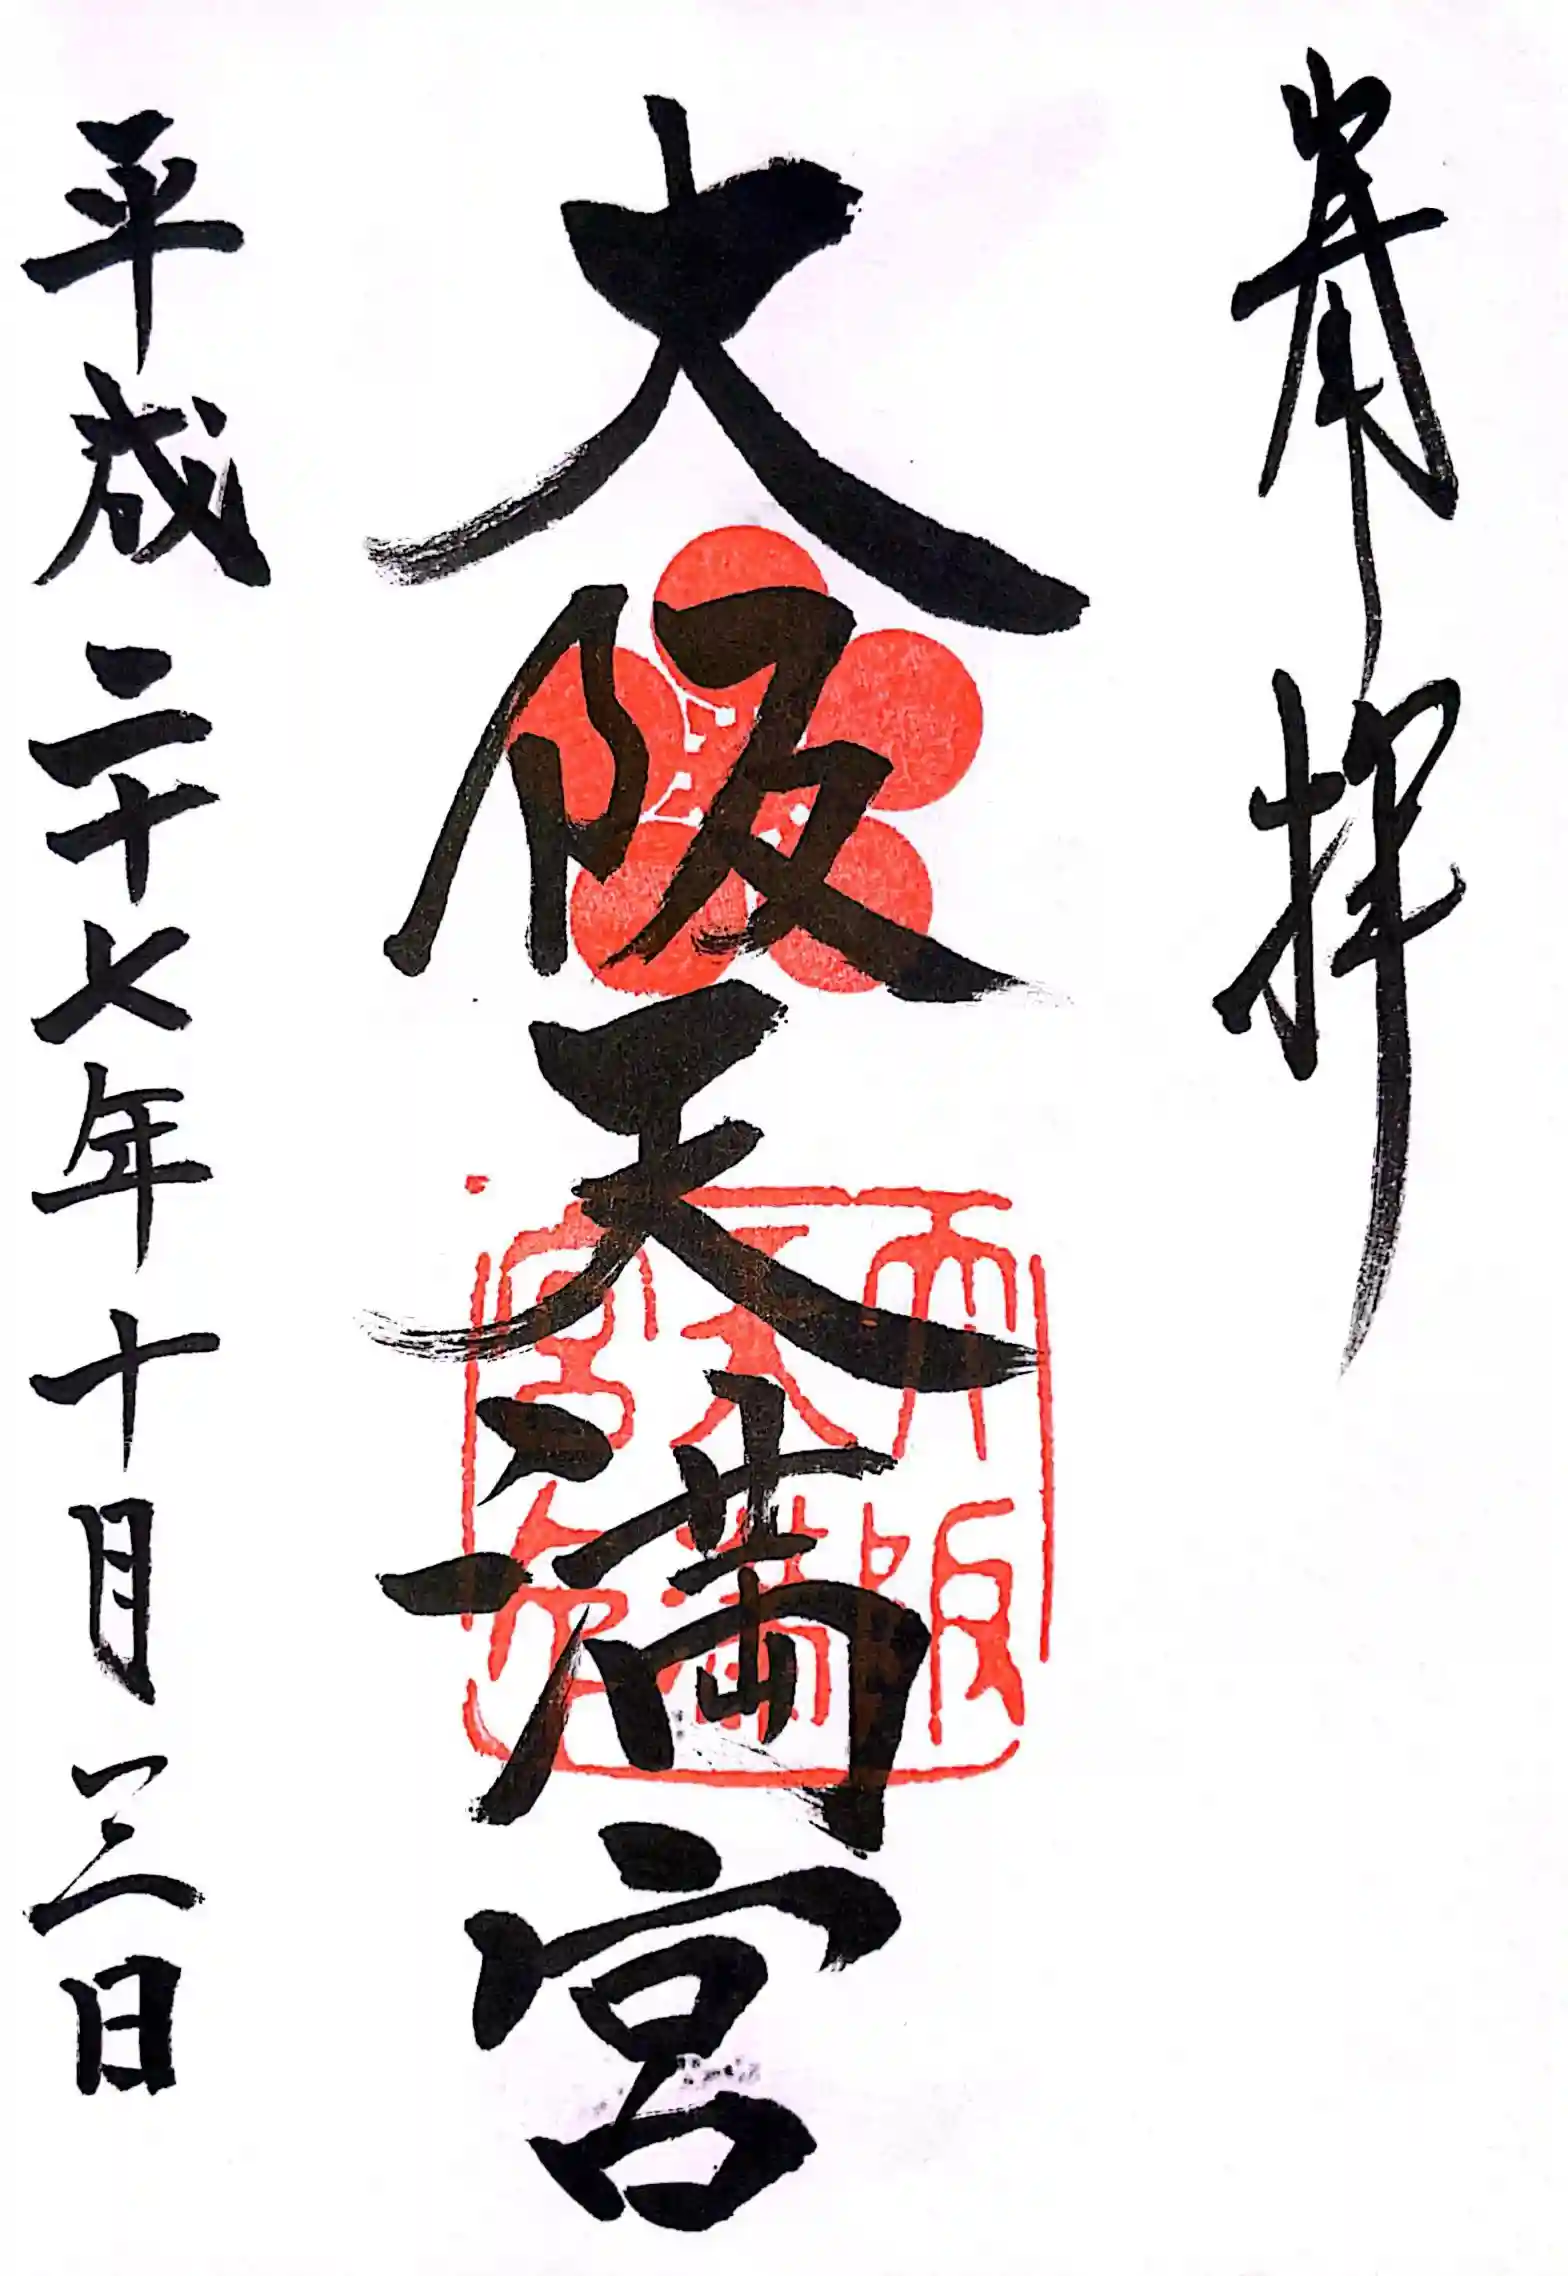 奉拝
大阪天満宮
大阪
天満
宮
平成二十七年十月三日